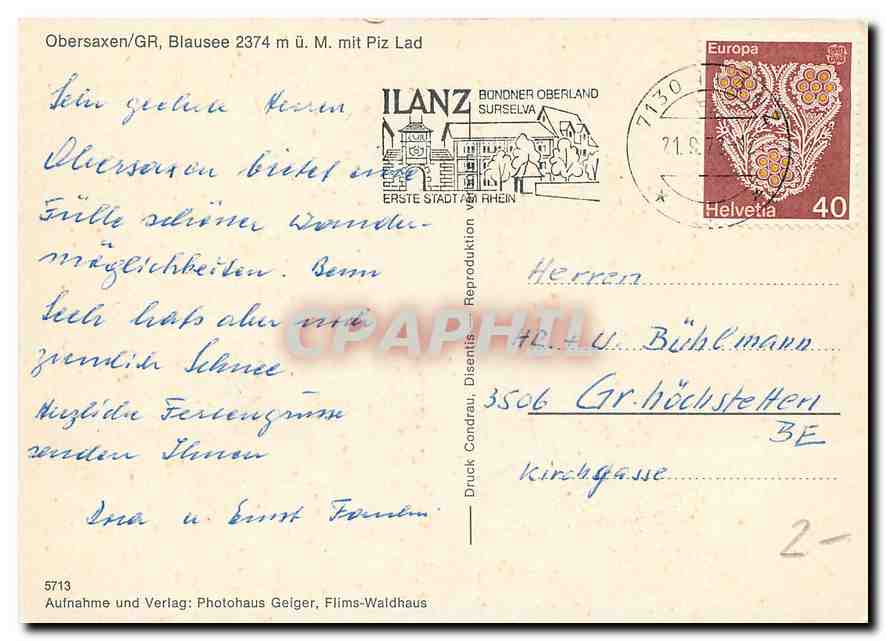 Obersaxen/GR, Blausee 2374 m ü. M. mit Piz Lad
Sehr geehrte Herren,
Obersaxen bietet eine
Fülle schöner Wander-
möglichkeiten. Beim
Seeli hats aber noch
ziemlich Schnee.
Herzliche Feriengrüsse
senden Ihnen
Dora u. Ernst
5713
Aufnahme und Verlag: Photohaus Geiger, Flims-Waldhaus
Druck Condrau, Disentis — Reproduktion
ILANZ
BÜNDNER OBERLAND
SURSELVA
ERSTE STADT AM RHEIN
7130
Europa
Helvetia 40
CPAPHIL
Herren
HD. + U. Bühlmann
3506 Gr. höchstetten
BE
Kirchgasse
2-